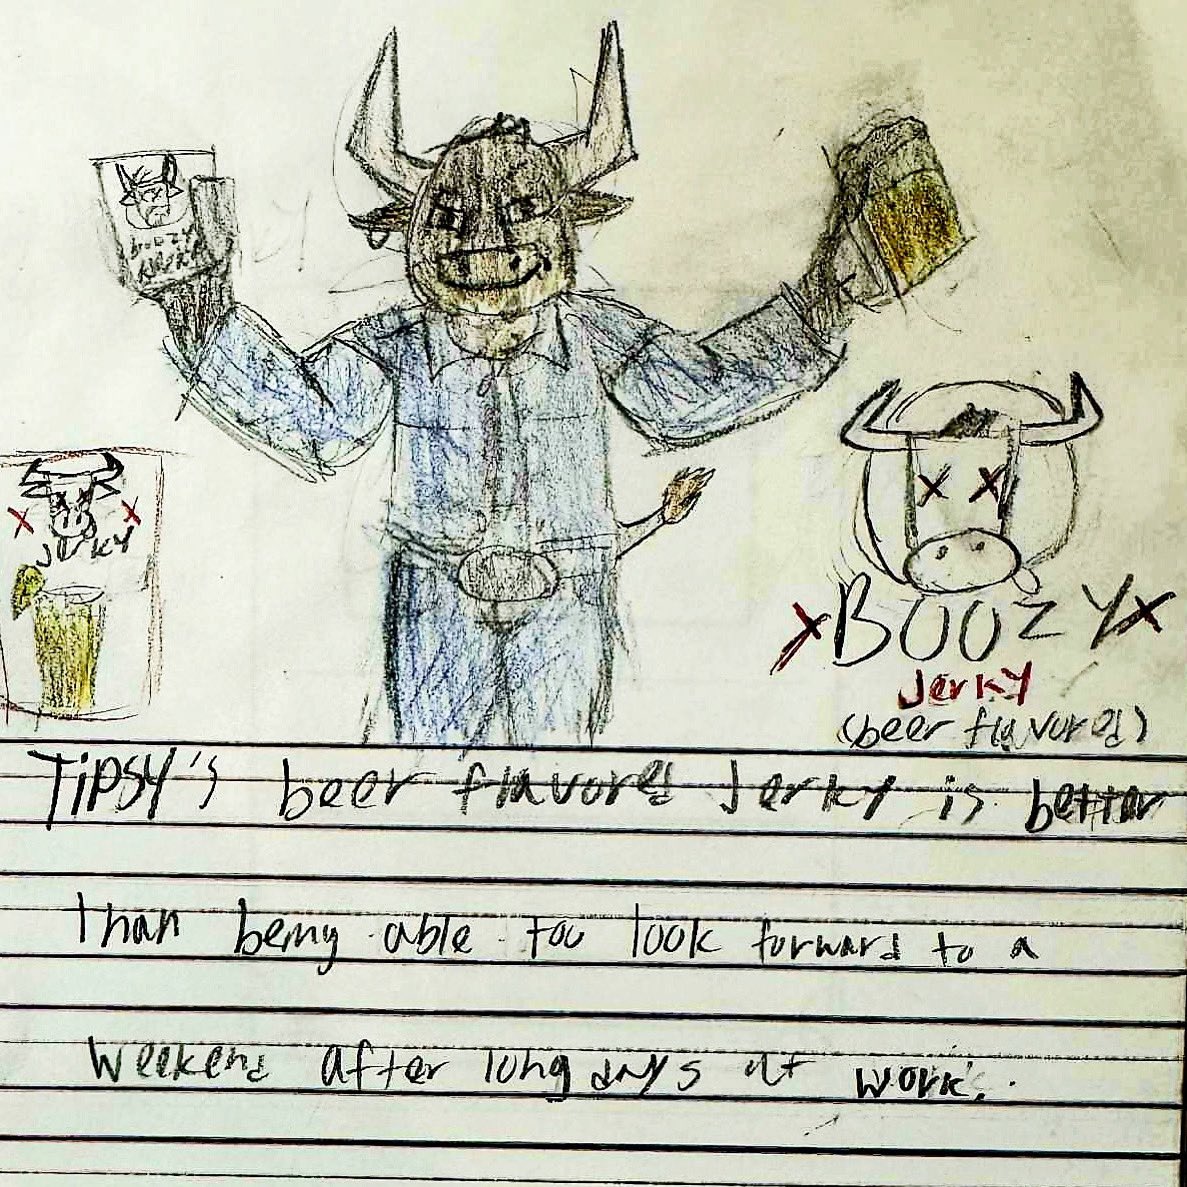 BOOZY
JERKY
JERKY
X BOOZY X
Jerky
(beer flavored)
TIPSY's beer flavored Jerky is better
than being able too look forward to a
weekend after long days at work.